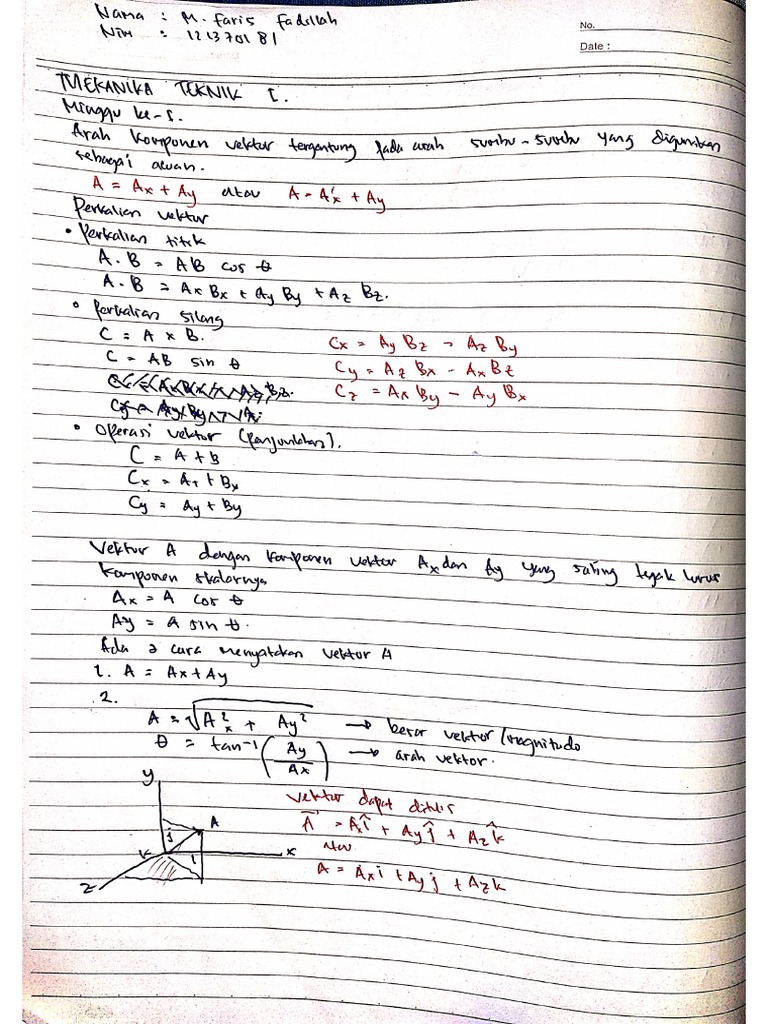 Nama : M. Faris Fadillah
Nim : 121370181
No.
Date :
MEKANIKA TEKNIK I.
Minggu ke-1.
Arah komponen vektor tergantung pada arah sumbu-sumbu yang digunakan
sebagai acuan.
A = Ax + Ay atau A = A'x + Ay
Perkalian vektor
• Perkalian titik
A . B = AB cos θ
A . B = Ax Bx + Ay By + Az Bz.
• Perkalian silang
C = A x B.
Cx = Ay Bz - Az By
C = AB sin θ
Cy = Az Bx - Ax Bz
Cz = Ax By - Ay Bx
• Operasi vektor (penjumlahan).
C = A + B
Cx = Ax + Bx
Cy = Ay + By
Vektor A dengan komponen vektor Ax dan Ay yang saling tegak lurus
Komponen skalarnya
Ax = A cos θ
Ay = A sin θ.
Ada 2 cara menyatakan vektor A
1. A = Ax + Ay
2.
A = √Ax² + Ay² → besar vektor/magnitudo
θ = tan-1 (Ay/Ax) → arah vektor.
y
A
j
K
i
x
z
Vektor dapat ditulis
A = Axî + Ayĵ + Azk̂
atau
A = Axi + Ayj + Azk